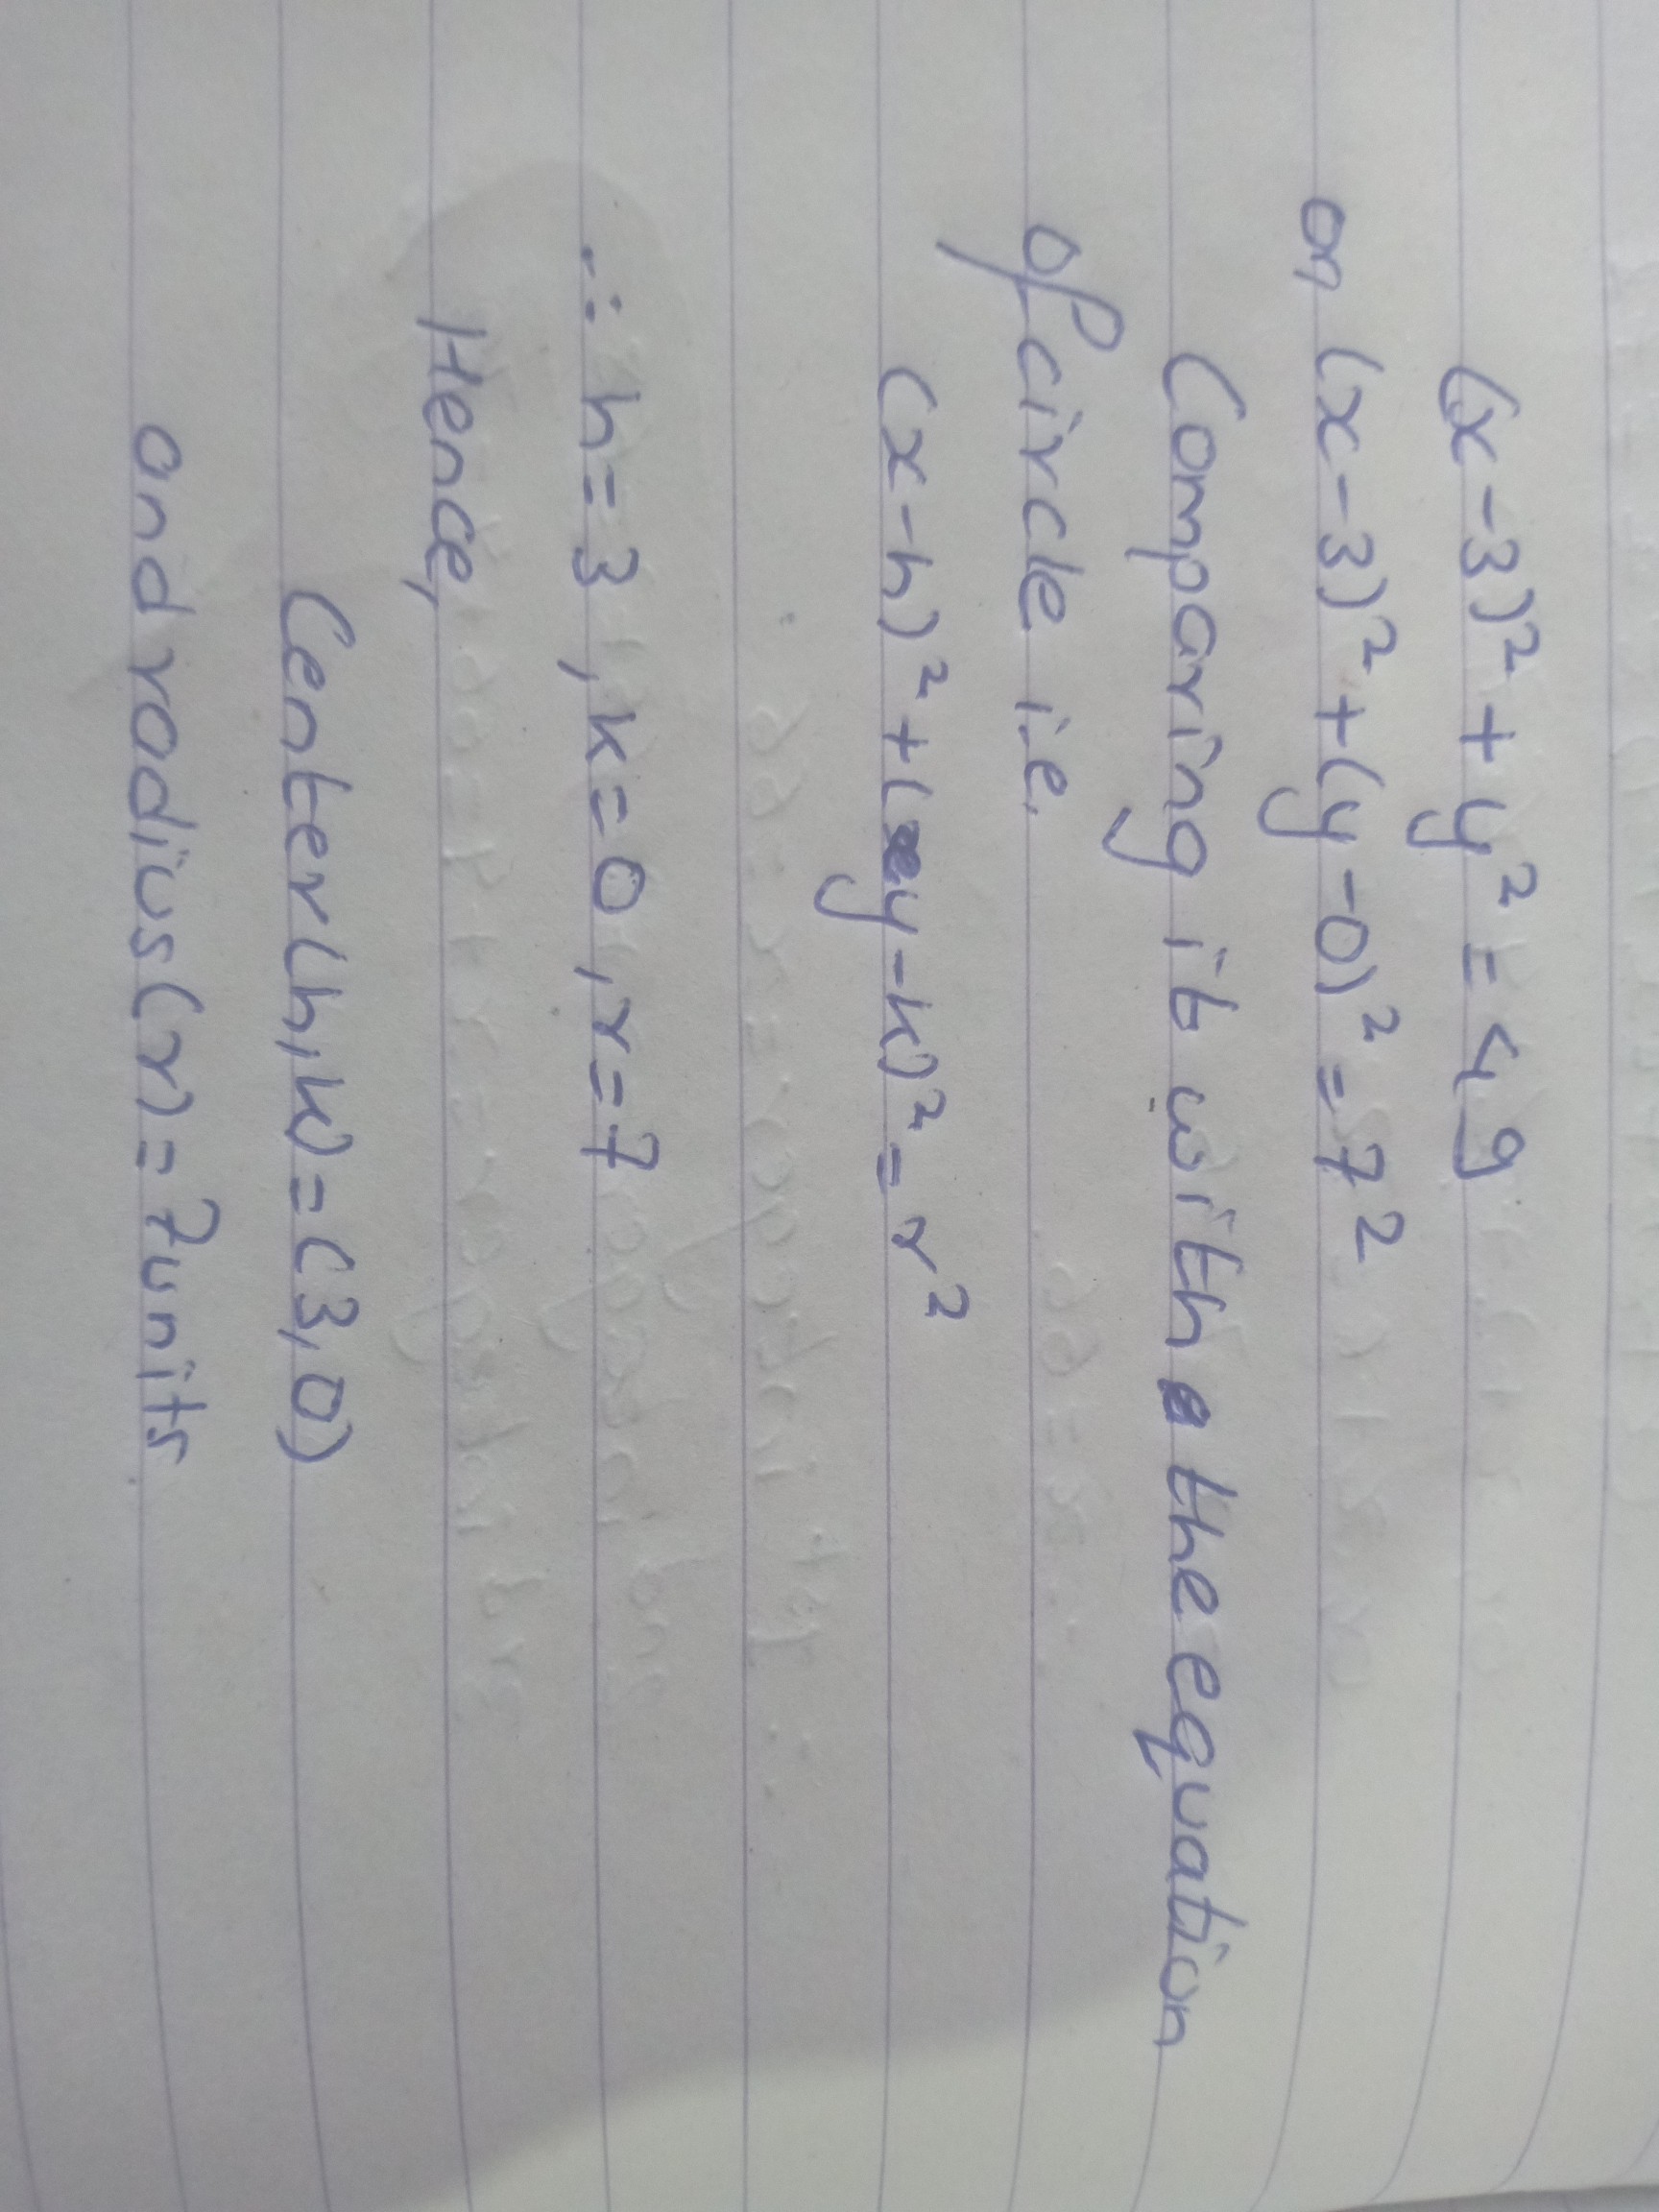 (x-3)² + y² = 49
or, (x-3)² + (y-0)² = 7²
Comparing it with the equation
of circle i.e.
(x-h)² + (y-k)² = r²
∴ h=3, k=0, r=7
Hence,
Center (h,k) = (3,0)
and radius (r) = 7 units